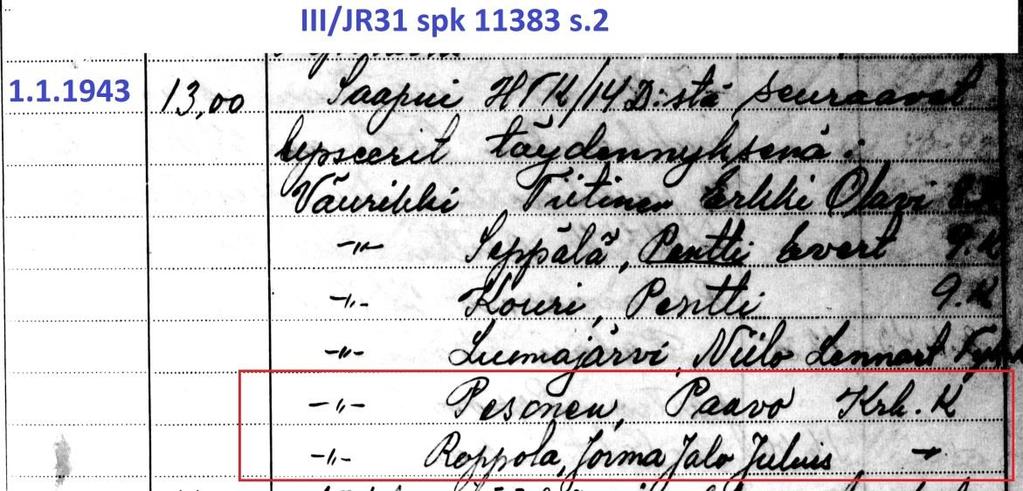 III/JR31 spk 11383 s.2
1.1.1943 13,00 Saapui HTK/14 D:stä seuraavat
upseerit täydennyksenä:
Vänrikki Tiitinen Erkki Olavi
-"- Seppälä, Pentti Evert 9.K
-"- Kouri, Pentti 9.K
-"- Luemajärvi, Niilo Lennart
-"- Pesonen, Paavo Krh.K
-"- Roppola, Jorma Jalo Julius -"-